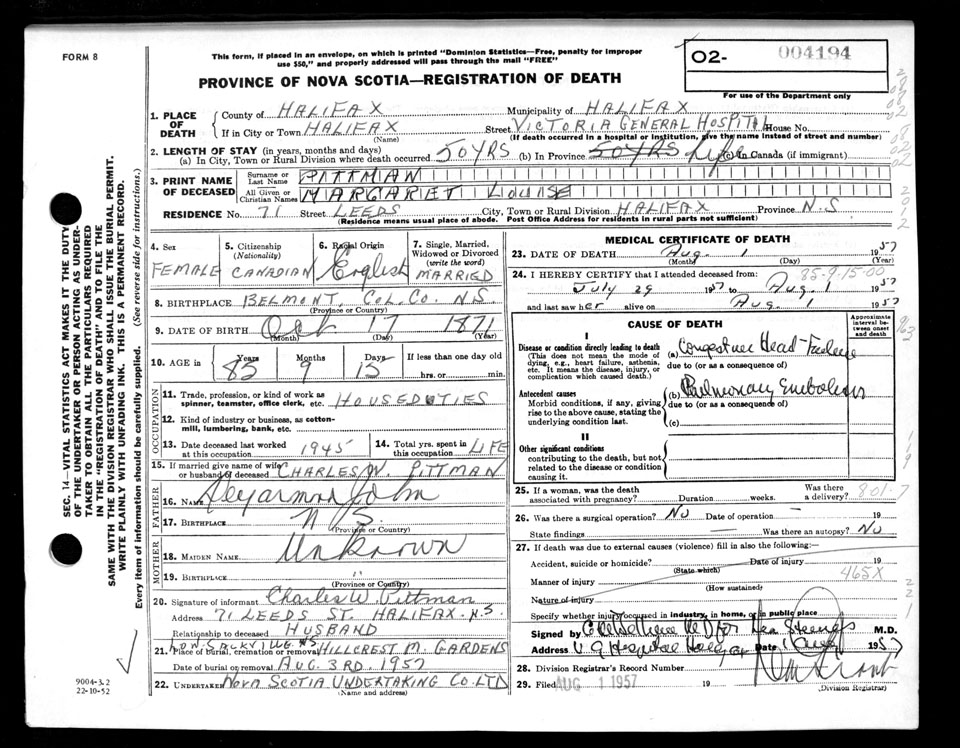 FORM 8
This form, if placed in an envelope, on which is printed "Dominion Statistics—Free, penalty for improper
use $50," and properly addressed will pass through the mail "FREE"
PROVINCE OF NOVA SCOTIA—REGISTRATION OF DEATH
O2- 004194
For use of the Department only
SEC. 14—VITAL STATISTICS ACT MAKES IT THE DUTY
OF THE UNDERTAKER OR PERSON ACTING AS UNDER-
TAKER TO OBTAIN ALL THE PARTICULARS REQUIRED
IN THE "REGISTRATION OF DEATH" AND TO FILE THE
SAME WITH THE DIVISION REGISTRAR WHO SHALL ISSUE THE BURIAL PERMIT.
WRITE PLAINLY WITH UNFADING INK. THIS IS A PERMANENT RECORD.
Every item of information should be carefully supplied. (See reverse side for instructions.)
1. PLACE OF DEATH
County of HALIFAX Municipality of HALIFAX
If in City or Town HALIFAX Street VICTORIA GENERAL HOSPITAL House No.
(Name) (If death occurred in a hospital or institution, give the name instead of street and number)
2. LENGTH OF STAY (in years, months and days)
(a) In City, Town or Rural Division where death occurred 50YRS (b) In Province 50YRS Life (c) In Canada (if immigrant)
3. PRINT NAME OF DECEASED
Surname or Last Name PITTMAN
All Given or Christian Names MARGARET LOUISE
RESIDENCE No. 71 Street LEEDS City, Town or Rural Division HALIFAX Province N.S
(Residence means usual place of abode. Post Office Address for residents in rural parts not sufficient)
4. Sex FEMALE
5. Citizenship (Nationality) CANADIAN
6. Racial Origin English
7. Single, Married, Widowed or Divorced (write the word) MARRIED
8. BIRTHPLACE BELMONT, COL. CO. N.S.
(Province or Country)
9. DATE OF BIRTH Oct 17 1871
(Month) (Day) (Year)
10. AGE in Years Months Days If less than one day old
85 9 15 hrs. or min.
OCCUPATION
11. Trade, profession, or kind of work as
spinner, teamster, office clerk, etc. HOUSEDUTIES
12. Kind of industry or business, as cotton-
mill, lumbering, bank, etc.
13. Date deceased last worked
at this occupation 1945
14. Total yrs. spent in
this occupation LIFE
15. If married give name of wife
or husband of deceased CHARLES W. PITTMAN
FATHER
16. Name
17. Birthplace N.S.
(Province or Country)
MOTHER
18. Maiden Name Unknown
19. Birthplace "
(Province or Country)
20. Signature of informant Charles W. Pittman
Address 71 LEEDS ST. HALIFAX. N.S.
Relationship to deceased HUSBAND
21. Place of burial, cremation or removal HILLCREST M. GARDENS
Date of burial or removal AUG. 3RD. 1957
22. Undertaker NOVA SCOTIA UNDERTAKING CO. LTD
(Name and address)
9004-3.2
22-10-52
MEDICAL CERTIFICATE OF DEATH
23. DATE OF DEATH Aug. 1 1957
(Month) (Day) (Year)
85-9-15-00
24. I HEREBY CERTIFY that I attended deceased from:
July 29 1957 to Aug. 1
and last saw her alive on Aug. 1 1957
CAUSE OF DEATH
Approximate interval between onset and death
I
Disease or condition directly leading to death
(This does not mean the mode of
dying, e.g., heart failure, asthenia,
etc. It means the disease, injury, or
complication which caused death.)
(a) Congestive Heart Failure
due to (or as a consequence of)
Antecedent causes
Morbid conditions, if any, giving
rise to the above cause, stating the
underlying condition last.
(b) Pulmonary Embolism
due to (or as a consequence of)
(c)
II
Other significant conditions
contributing to the death, but not
related to the disease or condition
causing it.
25. If a woman, was the death
associated with pregnancy? Duration weeks. Was there a delivery? 801-7
26. Was there a surgical operation? No Date of operation — 19
State findings Was there an autopsy? No
27. If death was due to external causes (violence) fill in also the following:—
Accident, suicide or homicide? Date of injury 19
(State which) 465X
Manner of injury
(How sustained)
Nature of injury
Specify whether injury occurred in industry, in home, or in public place
Signed by M.D.
Address V.G. Hospital Date 1 Aug 1957
28. Division Registrar's Record Number
29. Filed AUG 1 1957 19
(Division Registrar)